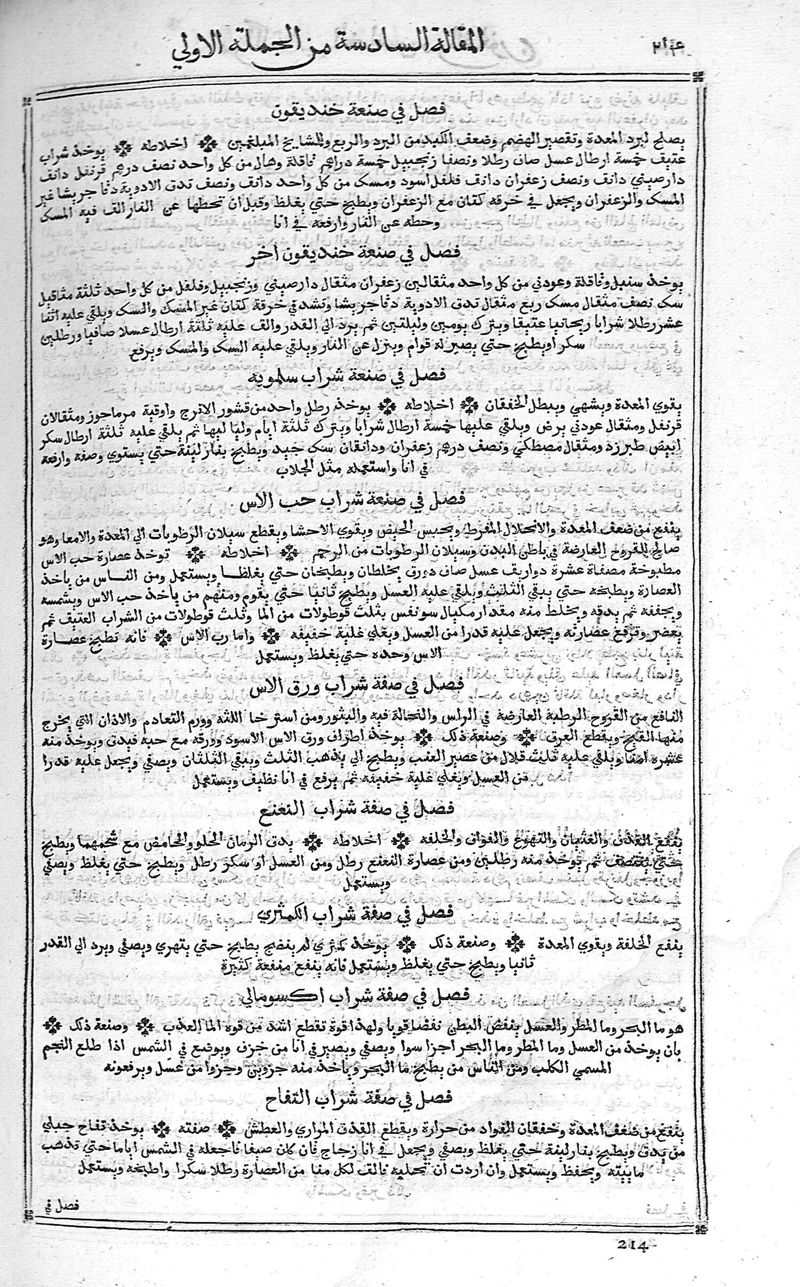 المقالة السادسة من الجملة الاولي
٢١٤
فصل في صنعة خنديقون
يصلح لبرد المعدة وتقصير الهضم وضعف الكبد من البرد والربع والمشايخ المبلغمين اخلاطه يوخذ شراب
عتيق خمسة ارطال عسل صاف رطلا ونصفا زنجبيل خمسة دراهم قاقلة وهال من كل واحد نصف درهم قرنفل دانق
دارصيني دانق ونصف زعفران دانق فلفل اسود ومسك من كل واحد دانق ونصف تدق الادوية دقا جريشا غير
المسك والزعفران ويجعل في خرقة كتان مع الزعفران ويطبخ حتي يغلظ وقبل ان تحطها عن النار الق فيه المسك
وحطه عن النار وارفعه في انا
فصل في صنعة خنديقون اخر
يوخذ سنبل وقاقلة وعودني من كل واحد مثقالين زعفران مثقال دارصيني وزنجبيل وفلفل من كل واحد ثلثة مثاقيل
سك نصف مثقال مسك ربع مثقال تدق الادوية دقا جريشا وتشد في خرقة كتان غير المسك والسك ويلقي عليه اثنا
عشر رطلا شرابا ريحانيا عتيقا ويترك يومين وليلتين ثم يرد الي القدر والق عليه ثلثة ارطال عسلا صافيا ورطلين
سكر او يطبخ حتي يصير له قوام وينزل عن النار ويلقي عليه السك والمسك ويرفع
فصل في صنعة شراب سلمويه
يقوي المعدة ويشهي ويبطل الخفقان اخلاطه يوخذ رطل واحد من قشور الاترج واوقية مرماحوز ومثقالان
قرنفل ومثقال عودني يرض ويلقي عليها خمسة ارطال شرابا ويترك ثلثة ايام ولياليها ثم يلقي عليه ثلثة ارطال سكر
ابيض طبرزد ومثقال مصطكي ونصف درهم زعفران ودانقان سك جيد ويطبخ بنار لينة حتي يستوي وصفه وارفعه
في انا واستعمله مثل الجلاب
فصل في صنعة شراب حب الاس
ينفع من ضعف المعدة والانحلال المفرط ويحبس الحيض ويقوي الاحشا ويقطع سيلان الرطوبات الي المعدة والامعا وهو
صالح للقروح العارضة في باطن البدن وسيلان الرطوبات من الرحم اخلاطه توخذ عصارة حب الاس
مطبوخة مصفاة عشرة دواريق عسل صاف دورق يخلطان ويطبخان حتي يغلظا ويستعمل ومن الناس من ياخذ
العصارة ويطبخه حتي يبقي الثلث ويلقي عليه العسل ويطبخ ثانيا حتي يقوم ومنهم من ياخذ حب الاس ويشمسه
ويجففه ثم يدقه ويخلط منه مقدار مكيال سونفس بثلث قوطولات من الما وثلث قوطولات من الشراب العتيق ثم
يعصر وترفع عصارته ويجعل عليه قدرا من العسل ويغلي غلية خفيفه واما رب الاس فانه تطبخ عصارة
الاس وحده حتي يغلظ ويستعمل
فصل في صفة شراب ورق الاس
النافع من القروح الرطبة العارضة في الراس والنخالة فيه والبثور ومن استرخا اللثه وورم النغانغ والاذان التي يخرج
منها القيح ويقطع العرق وصنعة ذلك يوخذ اطراف ورق الاس الاسود وورقه مع حبه فيدق ويوخذ منه
عشرة امنا ويلقي عليه ثلث قلال من عصير العنب ويطبخ الي يذهب الثلث ويبقي الثلثان ويصفي ويجعل عليه قدرا
من العسل ويغلي غلية خفيفه ثم يرفع في انا نظيف ويستعمل
فصل في صفة شراب النعنع
ينفع القذف والغثيان والتهوع والفواق والخلفه اخلاطه يدق الرمان الحلو والحامض مع شحمهما ويطبخ
حتي ينتصف ثم يوخذ منه رطلين ومن عصارة النعنع رطل ومن العسل او سكر رطل ويطبخ حتي يغلظ ويصفي
ويستعمل
فصل في صفة شراب الكمثري
ينفع الخلفة ويقوي المعدة وصنعة ذلك يوخذ كمثري لم ينضج يطبخ حتي يتهري ويصفي ويرد الي القدر
ثانيا ويطبخ حتي يغلظ ويستعمل فانه ينفع منفعة كثيرة
فصل في صفة شراب اكسومالي
هو ما البحر وما المطر والعسل ينفض البطن نفضا قويا ولهذا قوة تقطع اشد من قوة الما العذب وصنعة ذلك
بان يوخذ من العسل وما المطر وما البحر اجزا سوا ويصفي ويصير في انا من خزف ويوضع في الشمس اذا طلع النجم
المسمي الكلب ومن الناس من يطبخ ما البحر وياخذ منه جزوين وجزوا من عسل ويرفعونه
فصل في صفة شراب التفاح
ينفع من ضعف المعدة وخفقان الفواد من حرارة ويقطع القذف المراري والعطش صفته يوخذ تفاح جبلي
من يدق ويطبخ بنار لينة حتي يغلظ ويصفي ويجعل في انا زجاج فان كان صيفا فاجعله في الشمس اياما حتي تذهب
ماييته ويحفظ ويستعمل وان اردت ان تحليه فالق لكل منا من العصارة رطلا سكرا واطبخه ويستعمل
فصل في
214